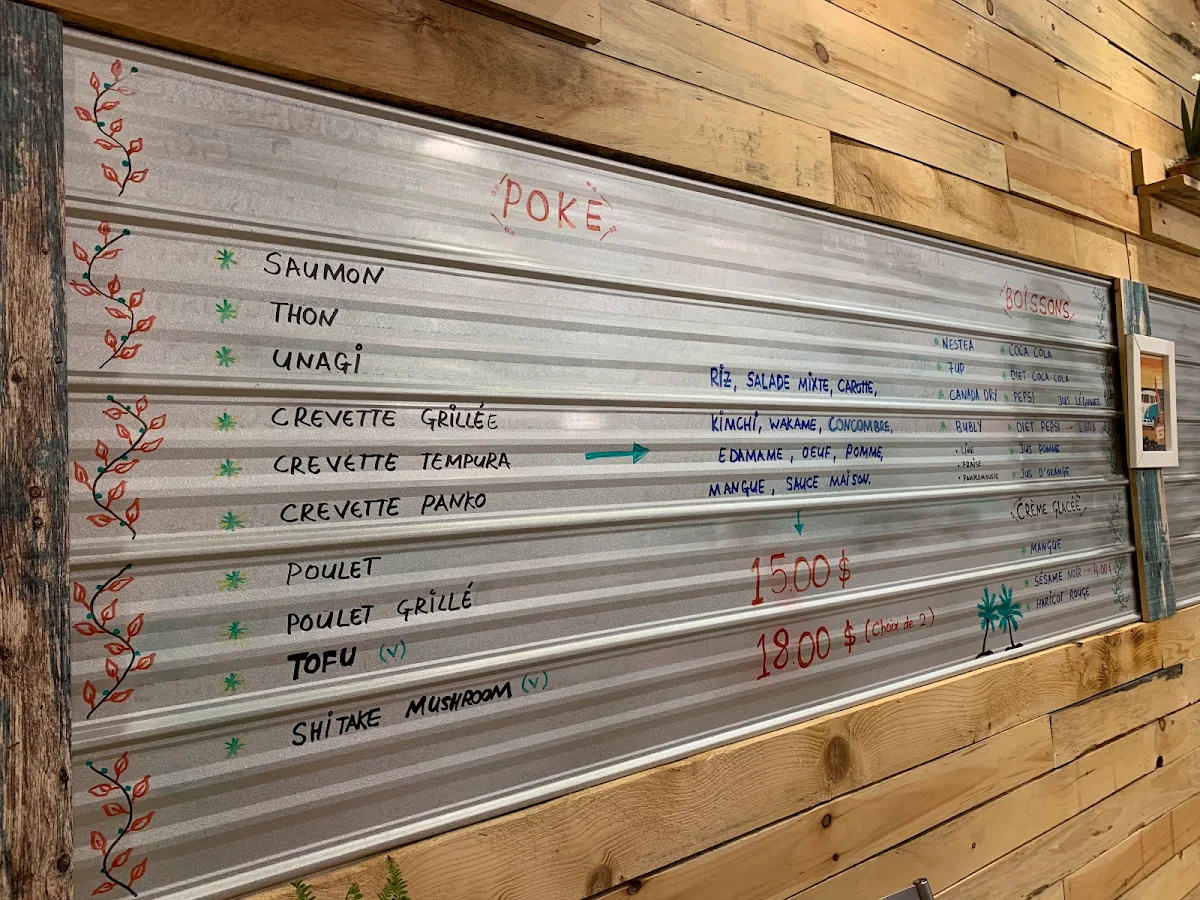 POKÉ
SAUMON
THON
UNAGI
CREVETTE GRILLÉE
CREVETTE TEMPURA
CREVETTE PANKO
POULET
POULET GRILLÉ
TOFU (V)
SHITAKE MUSHROOM (V)
RIZ, SALADE MIXTE, CAROTTE,
KIMCHI, WAKAME, CONCOMBRE,
EDAMAME, OEUF, POMME,
MANGUE, SAUCE MAISON.
15.00 $
18.00 $ (Choix de 2)
BOISSONS
NESTEA
7UP
CANADA DRY
BUBLY
• LIME
• FRAISE
• PAMPLEMOUSSE
COCA COLA
DIET COCA COLA
PEPSI JUS LÉGUMES
DIET PEPSI
JUS POMME
JUS D'ORANGE
CRÈME GLACÉE
MANGUE
SÉSAME NOIR - 4.00 $
HARICOT ROUGE